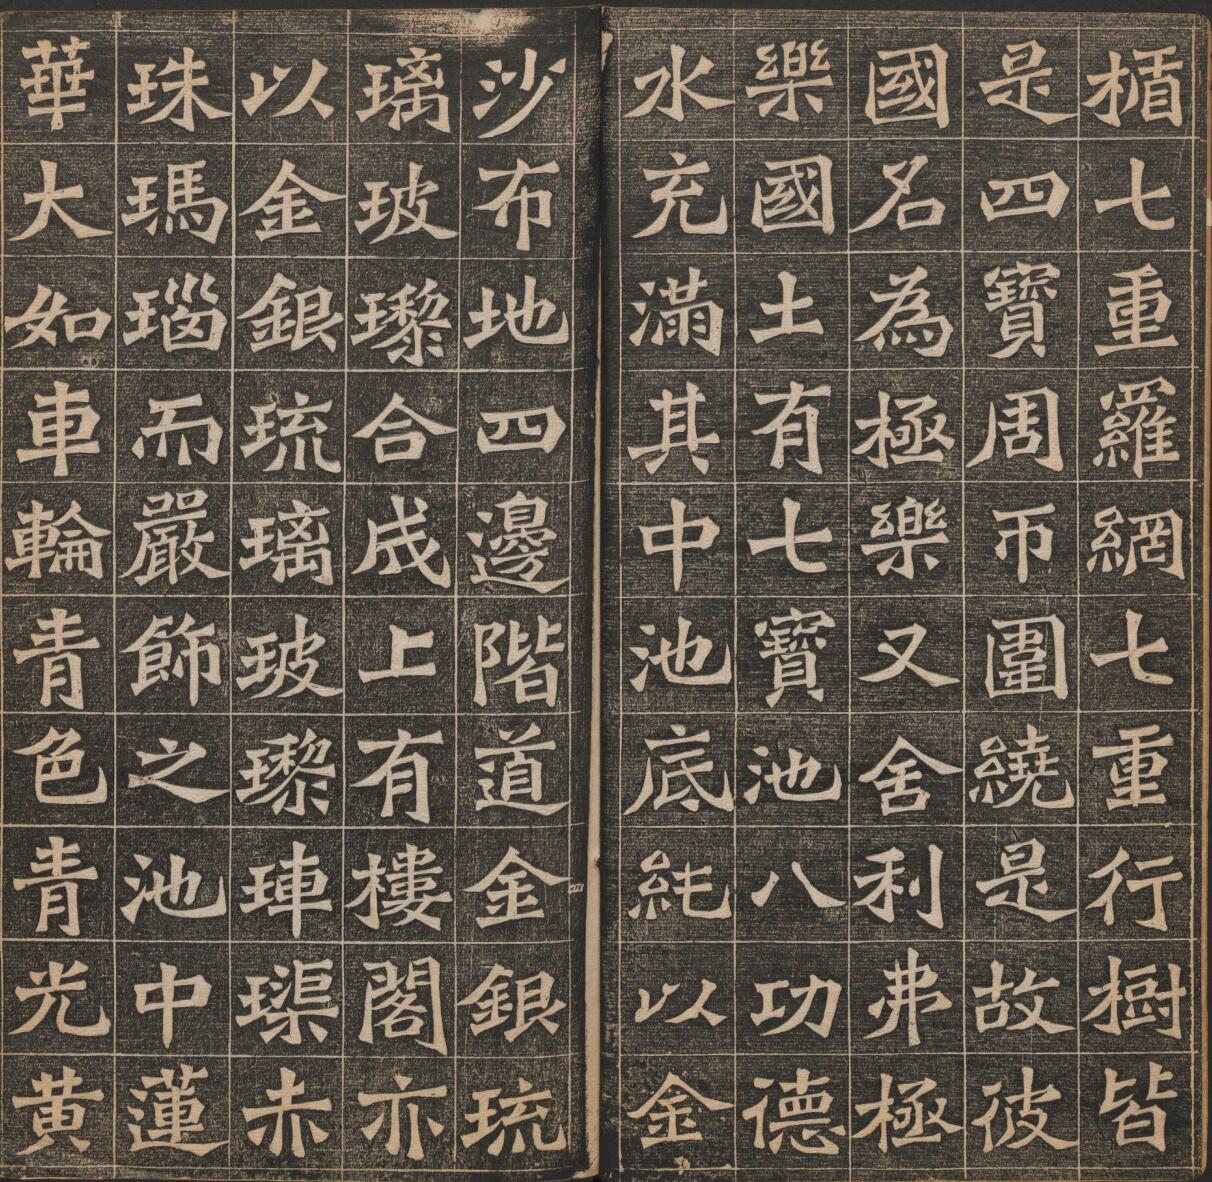 楯七重羅網七重行樹皆
是四寶周帀圍繞是故彼
國名為極樂又舍利弗極
樂國土有七寶池八功德
水充滿其中池底純以金
沙布地四邊階道金銀琉
璃玻瓈合成上有樓閣亦
以金銀琉璃玻瓈硨磲赤
珠瑪瑙而嚴飾之池中蓮
華大如車輪青色青光黃